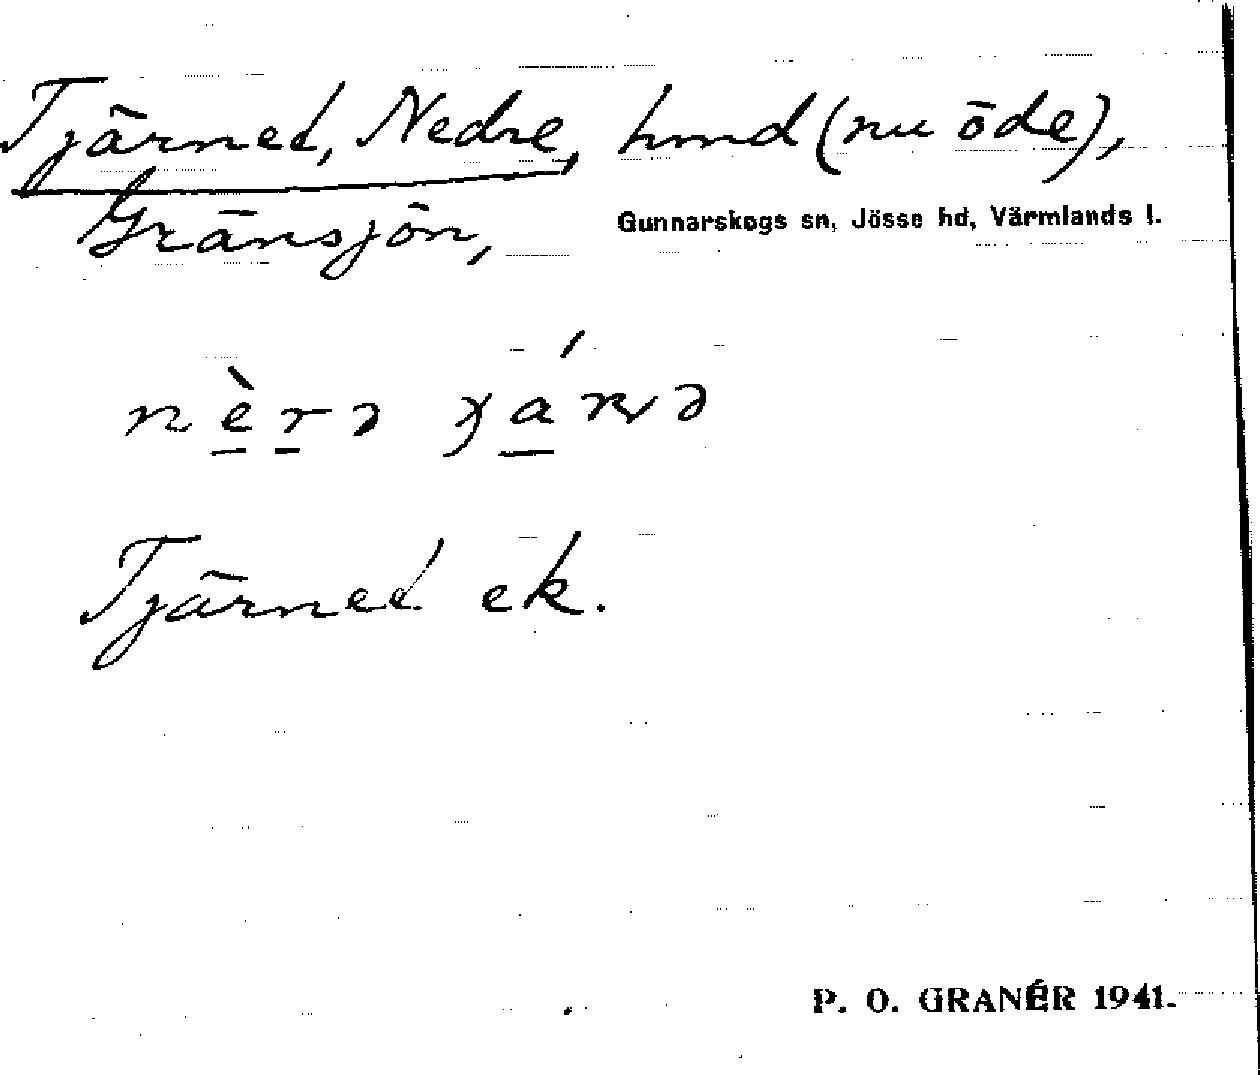 Tjärnet, Nedre, hmd (nu öde),
Gränsjön,
Gunnarskogs sn, Jösse hd, Värmlands l.
Tjärnet ek.
P. O. GRANÉR 1941.